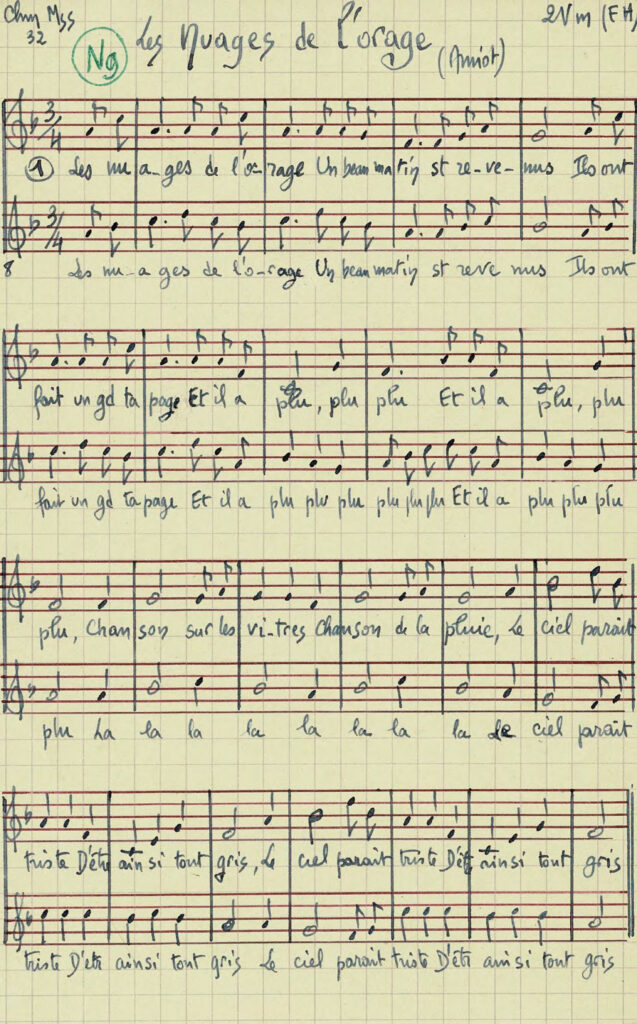 Chm Mss 2Vm (FH)
32
Ng Les Nuages de l'orage (Amiot)
3/4
1 Les nu-a-ges de l'o-rage Un beau matin st re-ve-nus Ils ont
3/4
8 Les nu-a ges de l'o-rage Un beau matin st reve nus Ils ont
fait un gd ta page Et il a plu, plu plu Et il a plu, plu
fait un gd ta page Et il a plu plu plu plu plu plu Et il a plu plu plu
plu, Chanson sur les vi-tres Chanson de la pluie, Le ciel parait
plu La la la la la la la la Le ciel parait
triste D'être ainsi tout gris, Le ciel parait triste D'êt ainsi tout gris
triste D'êtr ainsi tout gris Le ciel parait triste D'êtr ainsi tout gris